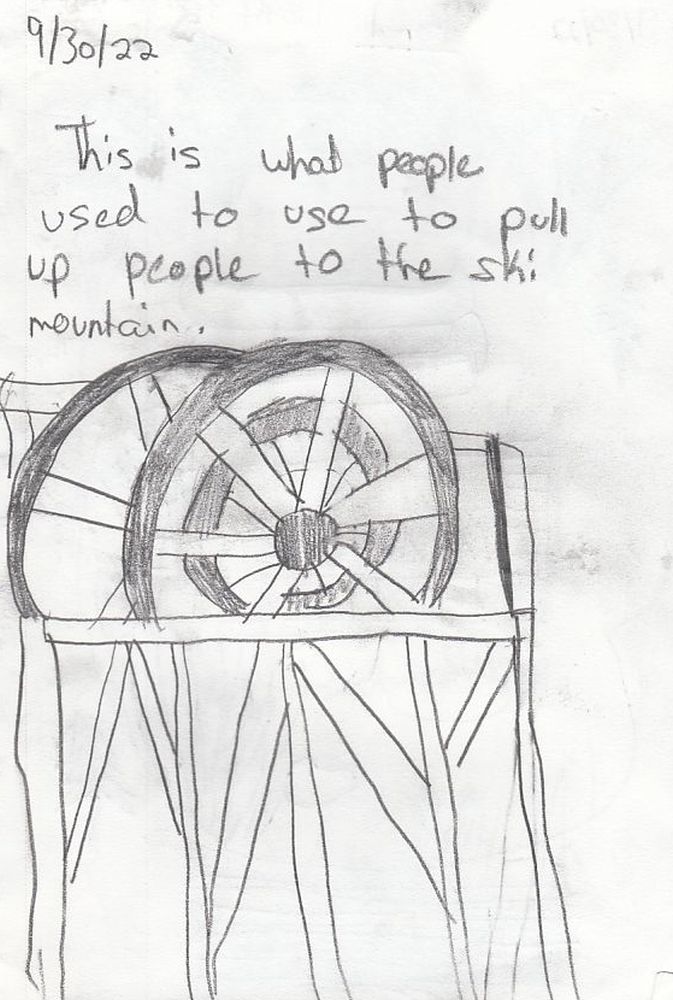 9/30/22
This is what people
used to use to pull
up people to the ski
mountain.